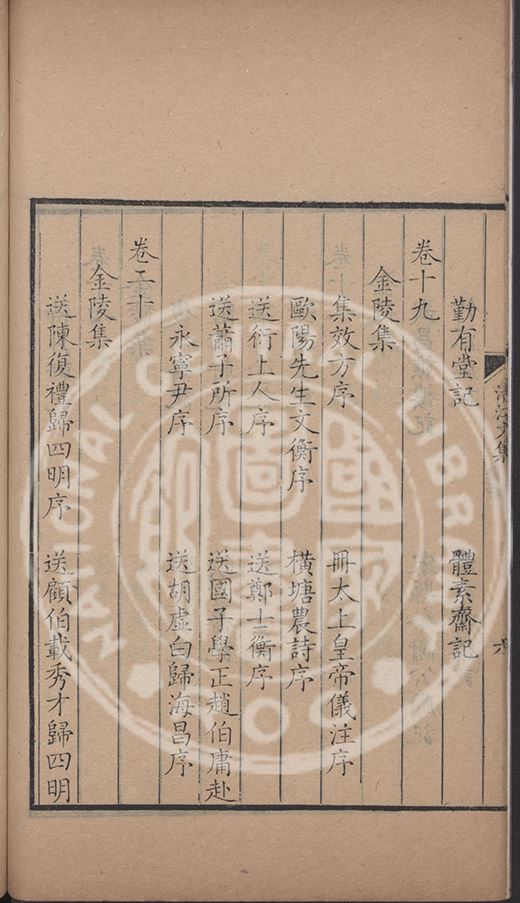 勤有堂記　體素齋記
卷十九
金陵集
集效方序　冊太上皇帝儀注序
歐陽先生文衡序　橫塘農詩序
送衍上人序　送鄭士衡序
送蕭子所序　送國子學正趙伯庸赴
永寧尹序　送胡虛白歸海昌序
卷二十
金陵集
送陳復禮歸四明序　送顧伯載秀才歸四明